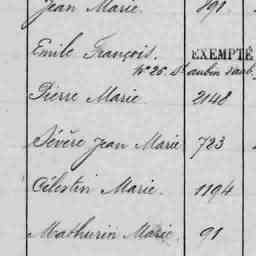 Jean Marie. 891.
Emile François. EXEMPTÉ
N° 26. St aubin
Pierre Marie. 2148
Sévère Jean Marie 723
Célestin Marie. 1194
Mathurin Marie. 91